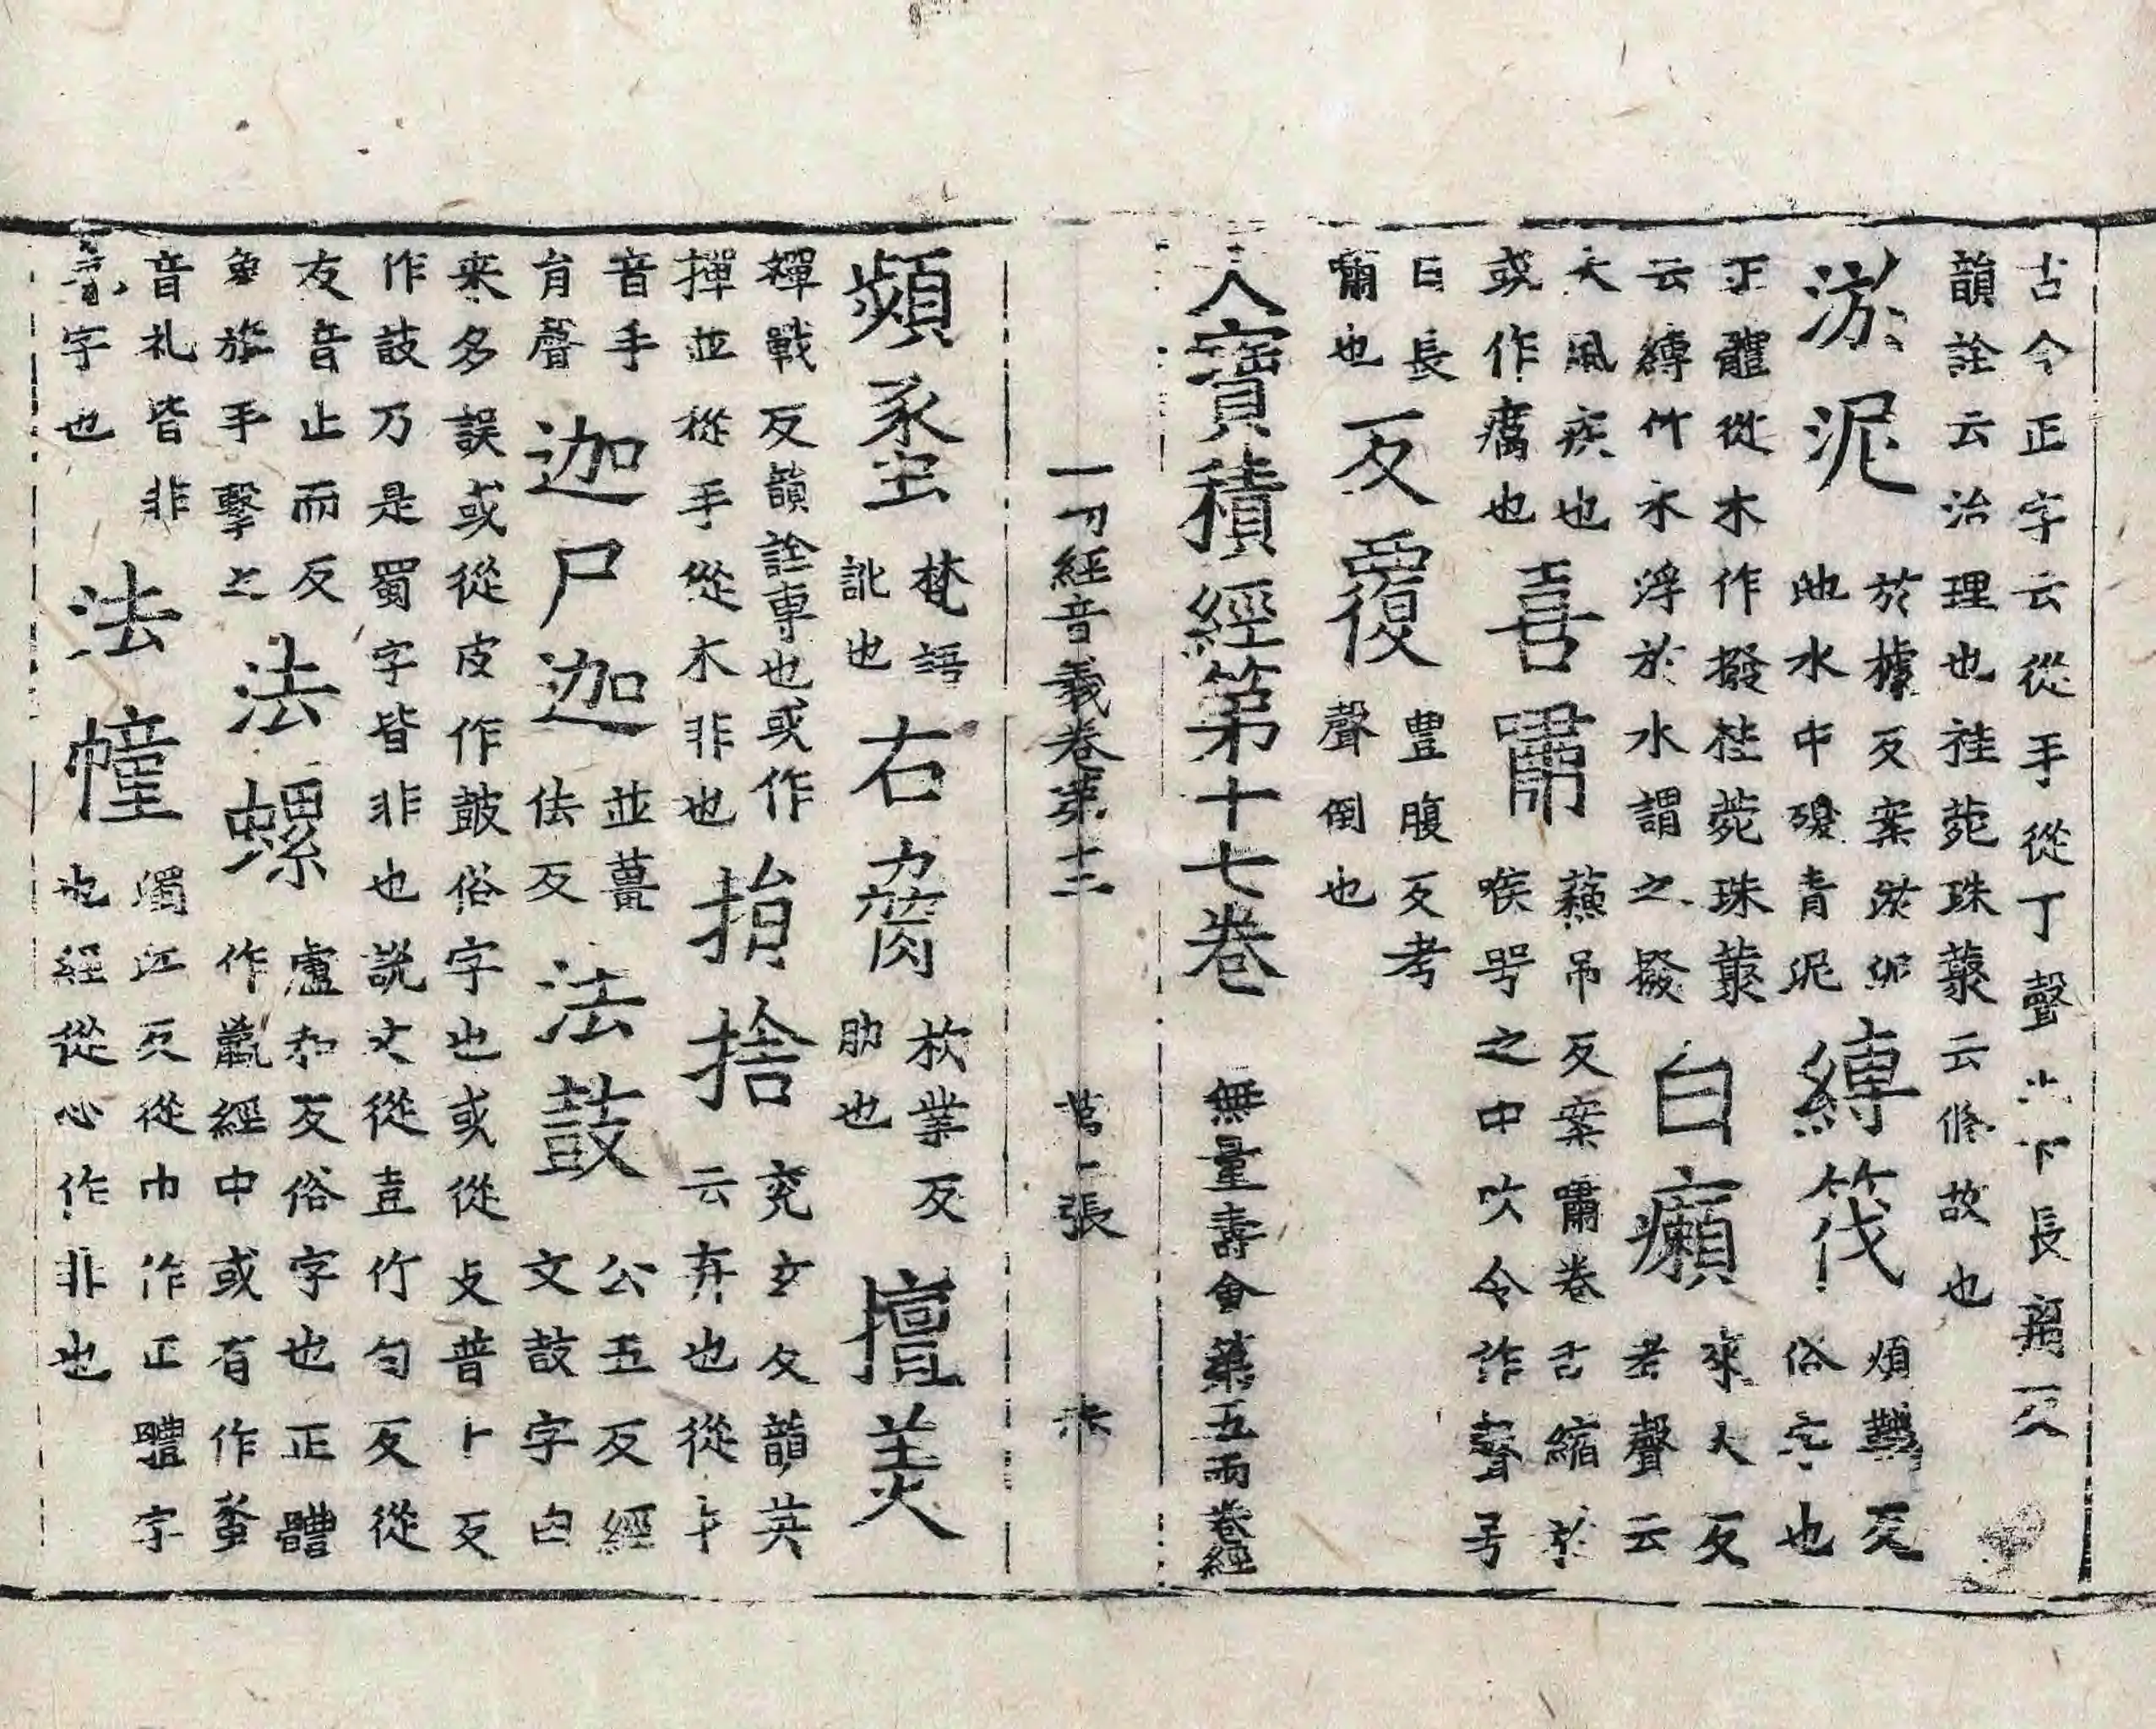 古今正字云從手從丁聲 下長
韻詮云治理也桂菀珠叢云修故也
淤泥 於據反案淤泥
池水中殿青泥
縛筏 煩韈反
俗字也
正體從木作撥桂菀珠叢
云縛竹木浮於水謂之撥
白癩 來大反
考聲云
大風疾也
或作癘也
喜嘯 蘇吊反案嘯卷舌縮於
喉咢之中吹令作聲号
曰長
嘯也
反覆 豊腹反考
聲倒也
大寶積經第十七卷 無量壽會第五兩卷經
一切經音義卷第十二 張
頻螺 梵語
訛也
右脅 杴業反
肋也
擅美
禪戰反韻詮專也或作
撣並從手從木非也
抬捨 云弃也從
音手
肎聲
迦尸迦 並薑
佉反
法鼓 公五反經
文鼓字白
来多誤或從皮作皷俗字也或從攴普卜反
作鼓乃是蜀字皆非也説文從壴竹句反從
友音止而反
象旅手擊之
法螺 盧和反俗字也正體
作蠃經中或有作蠡
音礼皆非
字也
法幢 濁江反從巾作正體字
也經從心作非也